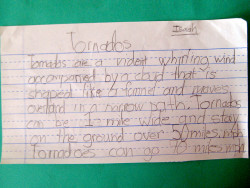 Tornados
Tornados are a violent whirling wind
accompanied by a cloud that is
shaped like a funnel and moves
overland in a narrow path. Tornados
can be 1 mile wide and stay
on the ground over 50 miles.
Tornadoes can go miles